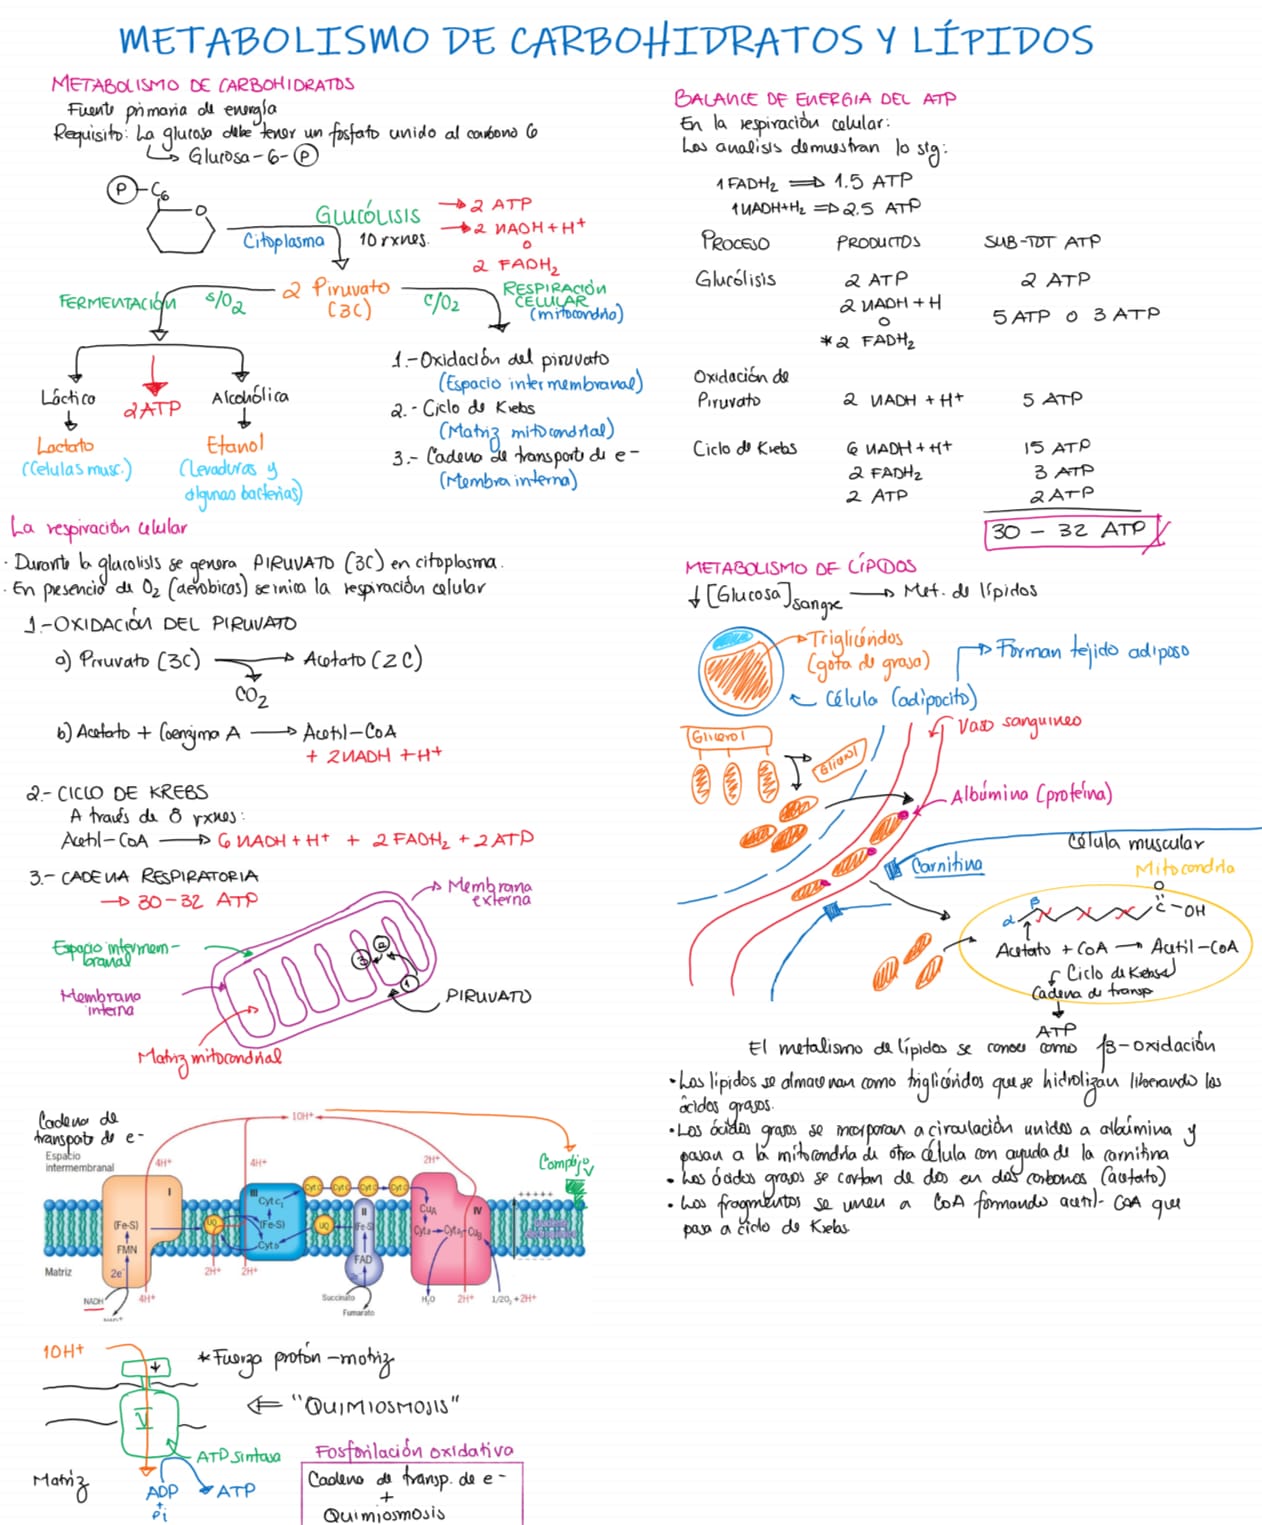 METABOLISMO DE CARBOHIDRATOS Y LÍPIDOS
METABOLISMO DE CARBOHIDRATOS
Fuente primaria de energía
Requisito: La glucosa debe tener un fosfato unido al carbono 6
Glucosa-6-P
P-C6
O
GLUCÓLISIS
Citoplasma
10 rxnes.
2 ATP
2 NADH + H+
o
2 FADH2
FERMENTACIÓN
s/O2
2 Piruvato
(3C)
c/O2
RESPIRACIÓN
CELULAR
(mitocondria)
Láctica
2ATP
Alcohólica
Lactato
(Celulas musc.)
Etanol
(Levaduras y
algunas bacterias)
1.-Oxidación del piruvato
(Espacio intermembranal)
2.- Ciclo de Krebs
(Matriz mitocondrial)
3.- Cadena de transporte de e-
(Membra interna)
La respiración celular
· Durante la glucolisis se genera PIRUVATO (3C) en citoplasma.
· En presencia de O2 (aerobicos) se inicia la respiración celular
1.-OXIDACIÓN DEL PIRUVATO
a) Piruvato (3C) → Acetato (2C)
CO2
b) Acetato + Coenzima A → Acetil-CoA
+ 2NADH + H+
2.- CICLO DE KREBS
A través de 8 rxnes:
Acetil-CoA → 6 NADH + H+ + 2 FADH2 + 2 ATP
3.- CADENA RESPIRATORIA
→ 30-32 ATP
Membrana
externa
Espacio intermem-
branal
Membrana
interna
3
2
1
PIRUVATO
Matriz mitocondrial
Cadena de
transporte de e-
Espacio
intermembranal
10H+
4H+
4H+
2H+
Complejo
V
I
III
II
IV
Cyt c
Cyt c
Cyt c
Cyt c
Cyt c1
(Fe-S)
UQ
(Fe-S)
Cyt b
UQ
(Fe-S)
CuA
Cyta
Cyta3
CuB
+++++
FMN
FAD
Matriz
2e-
2H+
2H+
2e-
NADH
4H+
Succinato
Fumarato
H2O
2H+
1/2O2 + 2H+
10H+
* Fuerza protón-motriz
⇐ "QUIMIOSMOSIS"
V
ATP sintasa
Matriz
ADP
+
Pi
ATP
Fosforilación oxidativa
Cadena de transp. de e-
+
Quimiosmosis
BALANCE DE ENERGIA DEL ATP
En la respiración celular:
Los analisis demuestran lo sig:
1 FADH2 ⇒ 1.5 ATP
1 NADH+H2 ⇒ 2.5 ATP
PROCESO PRODUCTOS SUB-TOT ATP
Glucólisis 2 ATP 2 ATP
2 NADH + H
o
5 ATP o 3 ATP
*2 FADH2
Oxidación de
Piruvato 2 NADH + H+ 5 ATP
Ciclo de Krebs 6 NADH+H+ 15 ATP
2 FADH2 3 ATP
2 ATP 2 ATP
30 - 32 ATP
METABOLISMO DE LÍPIDOS
↓ [Glucosa]sangre → Met. de lípidos
Triglicéridos
(gota de grasa)
Forman tejido adiposo
Célula (adipocito)
Vaso sanguineo
Glicerol
Glicerol
Albúmina (proteína)
Carnitina
Célula muscular
Mitocondria
α
β
O
C
-OH
Acetato + CoA → Acetil-CoA
Ciclo de Krebs
Cadena de transp
ATP
El metalismo de lípidos se conoce como β-oxidación
• Los lípidos se almacenan como triglicéridos que se hidrolizan liberando los
ácidos grasos.
• Los ácidos grasos se incorporan a circulación unidos a albúmina y
pasan a la mitocondria de otra célula con ayuda de la carnitina
• Los ácidos grasos se cortan de dos en dos carbonos (acetato)
• Los fragmentos se unen a CoA formando acetil-CoA que
pasa a ciclo de Krebs